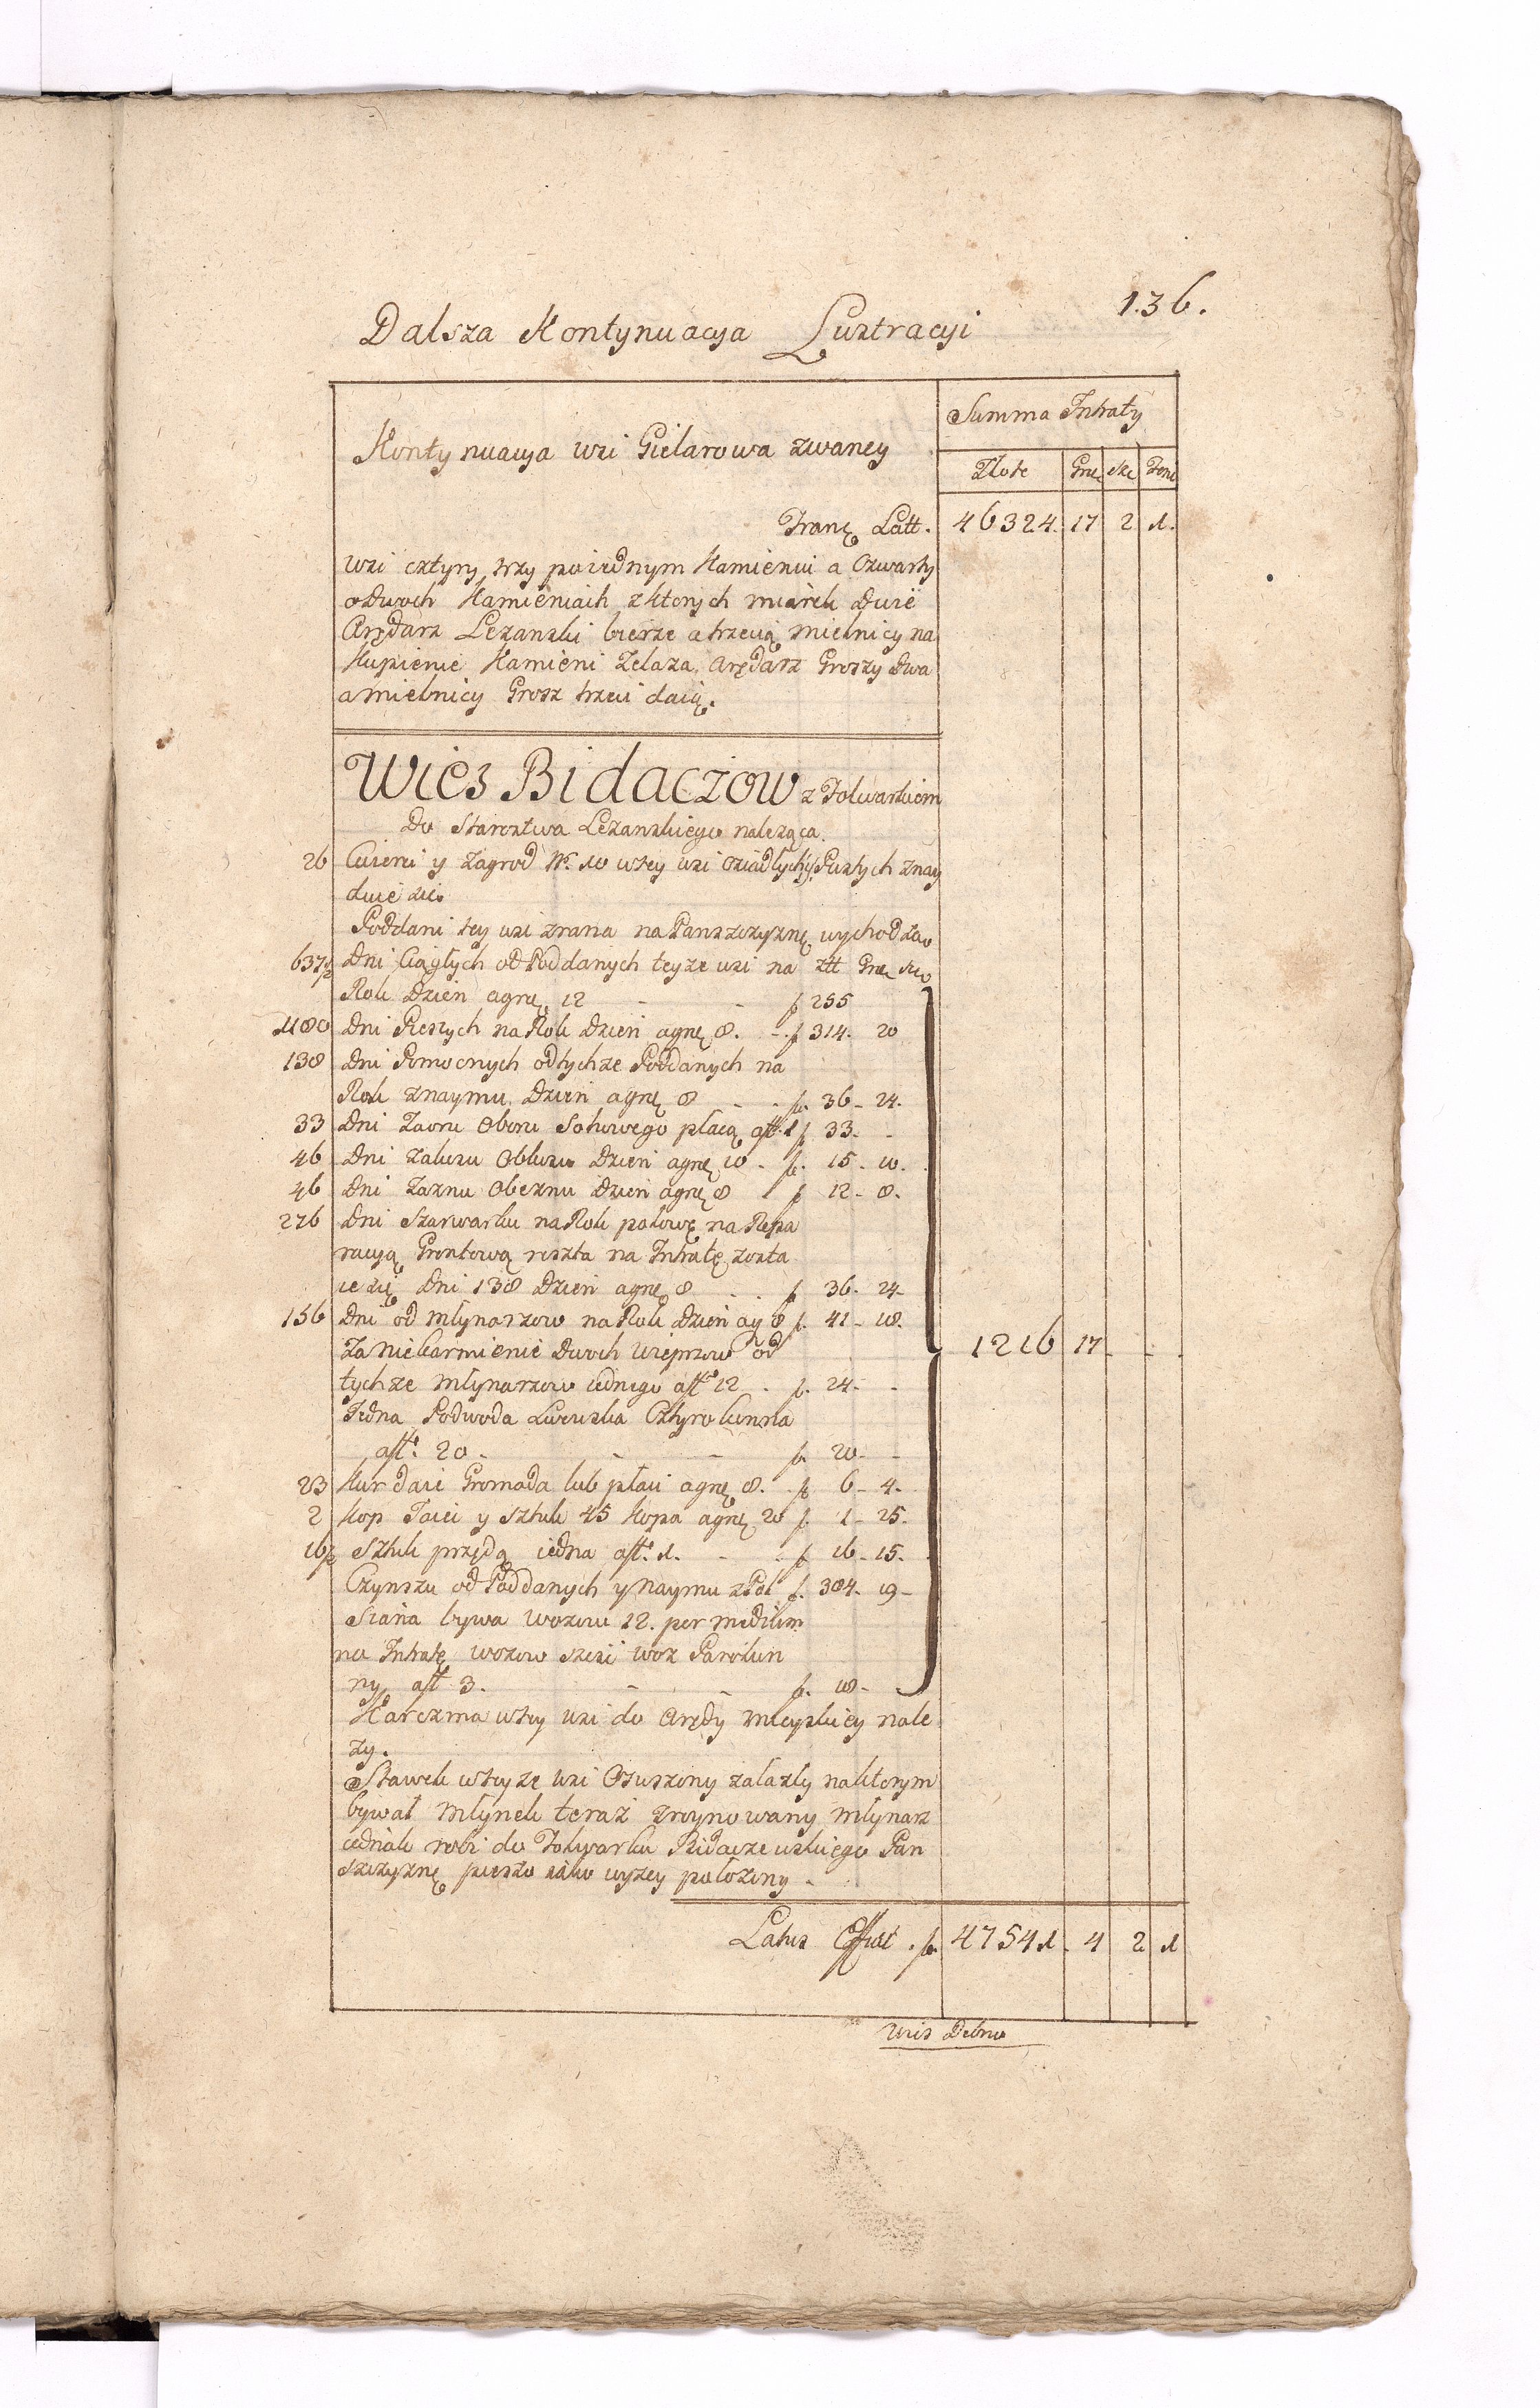 136.
Dalsza Kontynuacya Lustracyi
Summa Intraty
Kontynuacya wsi Gielarowa zwaney
Złote Grę Sze Deni
Tranę Latt. 46324. 17 2 1.
wsi cztyry, trzy poiednym Kamieniu a Czwarty
odwoch Kamieniach z ktorych miarek dwie
Arędarz Lezanski bierze a trzecią mielnicy na
Kupienie Kamieni Zelaza, Arędarz Groszy dwa
a mielnicy Grosz trzeci daią.
Wies Bidaczow z Folwarkiem
do Starostwa Lezanskiego naleząca.
26 Cwierci y Zagrod Nr. 10 wtey wsi osiadłych y Pustych znay
duie sie.
Poddani tey wsi zrana na Panszczyznę wychodzą
637½ Dni Ciągłych od Poddanych teyze wsi na złt Grę Sze
Rok dzien agrę 12 - - f 255
1180 Dni Pieszych na Rok dzien agrę 8. - f 314. 20
138 Dni Pomocnych od tychze Poddanych na
Rok znaymu dzien agrę 8 - - f. 36 - 24.
33 Dni Zaoru Oboru Sohowego płacą aft. 1 f 33. -
46 Dni Zaluzu Obluzu dzien agrę 10 - f. 15 - 10.
46 Dni Zaznu Obeznu dzien agrę 8 f 12 - 8.
276 Dni Szarwarku na Rok połowę na Repa
racyą Grontową reszta na Intratę zosta
ie się dni 138 dzien agrę 8 - - f 36 - 24 -
156 Dni od Młynarzow na Rok dzien ag 8 f. 41 - 18.
Za niekarmienie dwoch wieprzow od 1216 17 - - -
tychze Młynarzow iednego aft 12 - f. 24 - -
Jedna Podwoda Lwowska Cztyrokonna
aft. 20 - - - f. 20 - -
23 Kur daie Gromada lub płaci agrę 8. f 6 - 4 -
2 Kop Jaici y sztuk 45 Kopa agrę 20 f. 1 - 25 -
16½ Sztuk przędą iedna aft. 1. - - f 16 - 15 -
Czynszu od Poddanych y Naymu z Pol f. 384 - 19 -
Siana bywa wozow 12. per medium
na Intratę wozow szesc woz Parokon
ny aft 3. - - f. 18 -
Karczma wtey wsi do Arędy mieyskiey nale
zy.
Stawek wteyze wsi Osuszony zalazły naktorym
bywał Młynek teraz zroynowany Młynarz
iednak robi do Folwarku Bidaczewskiego Pan
szczyznę pieszo iako wyzey połozony -
Latus Effiat. f. 47541. 4 2 1
Wies Debno